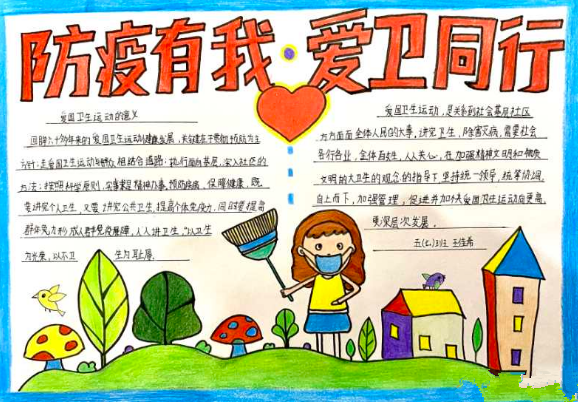 防疫有我·爱卫同行
爱国卫生运动的意义
回顾六十多年来的爱国卫生运动的健康发展，关键在于贯彻预防为主
方针；走爱国卫生运动与群众相结合道路；执行面向基层、深入社区的
方法；按照科学原则，实事求是精神办事。预防疾病，保障健康，既
要讲究个人卫生，又要讲究公共卫生，提高个体免疫力，同时要提高
群体免疫力形成人群免疫屏障，人人讲卫生，“以卫生
为光荣，以不卫生为耻辱。
爱国卫生运动，是关系到社会基层社区
方方面面全体人民的大事，讲究卫生，除害灭病，需要社会
各行各业，全体与生，人人关心，在加强精神文明和物质
文明的大卫生的观念的指导下，坚持统一领导，统筹协调，
自上而下，加强管理，促进并加快爱国卫生运动向更高，
更深层次发展。
五(2)班 王佳希